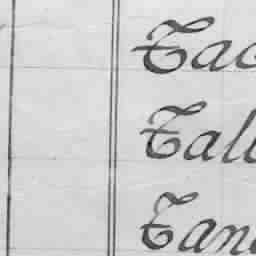 Tac
Tall
Tan